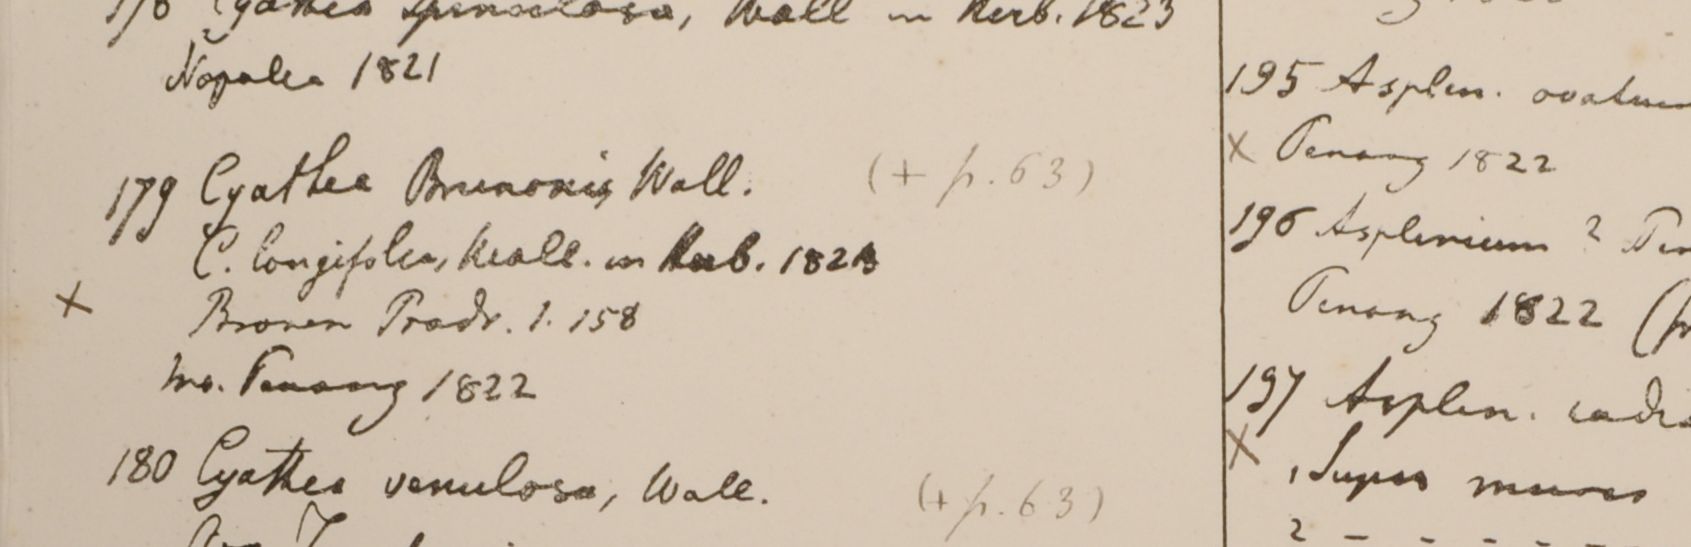 178 Cyathea spinulosa, Wall in Herb. 1823
Nopalea 1821
179 Cyathea Brunonis, Wall. (+ p. 63)
C. longifolia, Wall. in Herb. 182
× Brown Prodr. 1. 158
mo. Penang 1822
180 Cyathea venulosa, Wall. (+ p. 63)
195 Asplen. ovatum
× Penang 1822
196 Asplenium ?
Penang 1822
197 Asplen. radi
× Supra muros
2 - - - - -